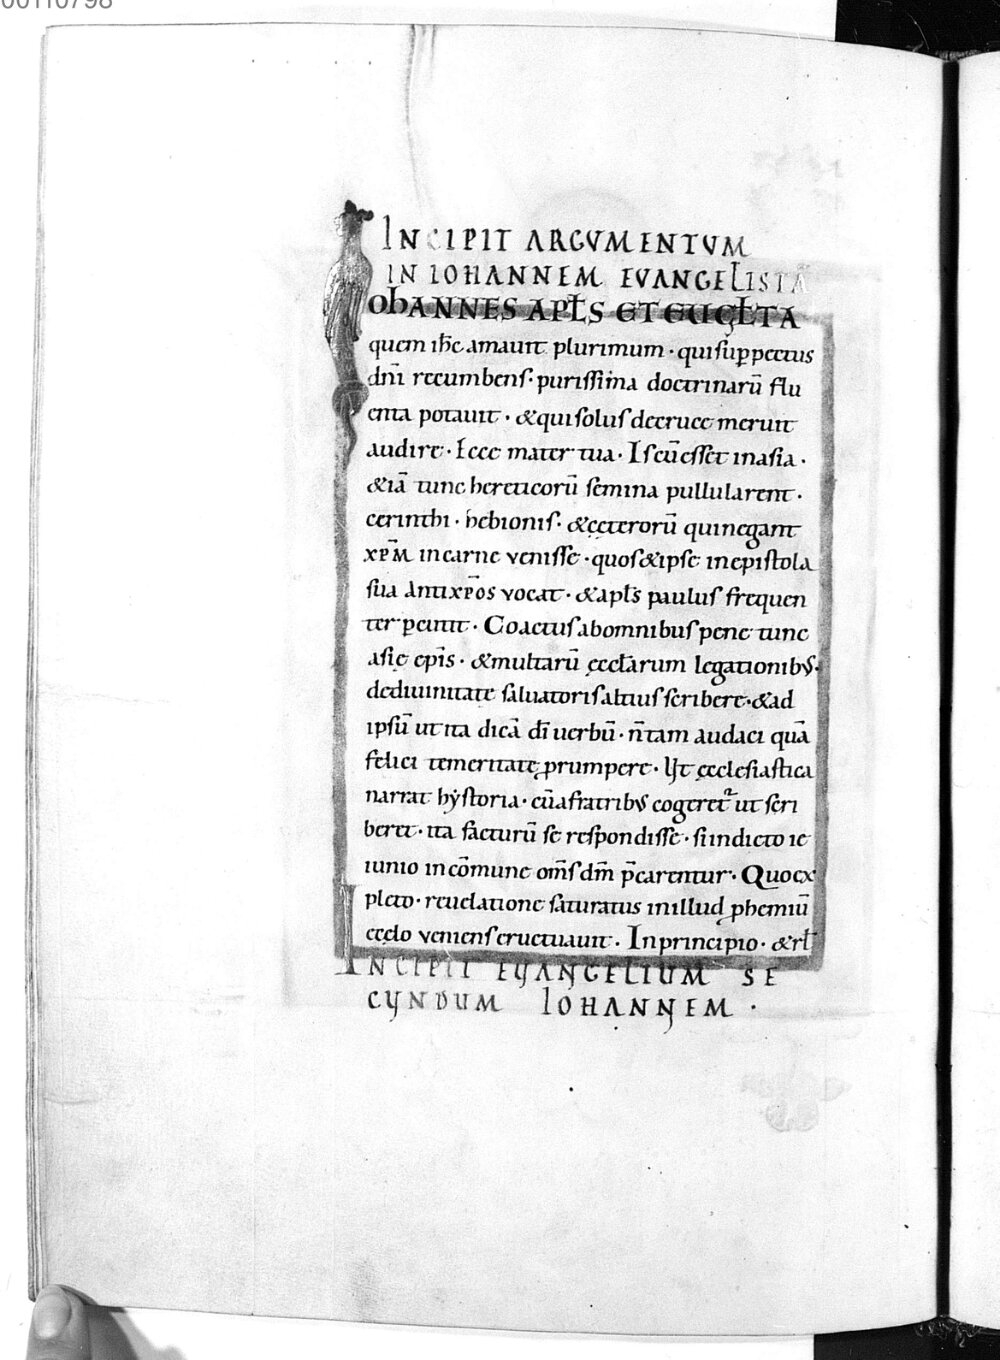 00110798
INCIPIT ARGVMENTVM
IN IOHANNEM EVANGELISTĀ
IOhANNES APŁS ET EUGŁTA
quem ih̄c amauit plurimum· qui sup̲ pectus
dn̄i recumbens· purissima doctrinarū flu
enta potauit· & qui solus de cruce meruit
audire· Ecce mater tua· Is cū esset in asia·
& iā tunc hereticorū semina pullularent·
cerinthi· hebionis· & cęterorū qui negant
xp̄m in carne venisse· quos & ipse in epistola
sua antixp̄os vocat· & apłs paulus frequen
ter p̲cutit· Coactus ab omnibus pene tunc
asię ep̄is· & multarū ęccłarum legationibus·
de diuinitate saluatoris altius scribere· & ad
ipsū ut ita dicā dī uerbū· n̄ tam audaci quā
felici temeritate prumpere· Ut ęcclesiastica
narrat hẏstoria· cū a fratribus cogeret̃ ut scri
beret· ita facturū se respondisse· si indicto ie
iunio in cōmune om̄s dm̄ p̄carentur· Quo ex
pleto· reuelatione saturatus in illud phemiū
cęlo veniens eructuauit· In principio· & rł
INCIPIT EVANGELIUM SE
CUNDUM IOHANNEM·